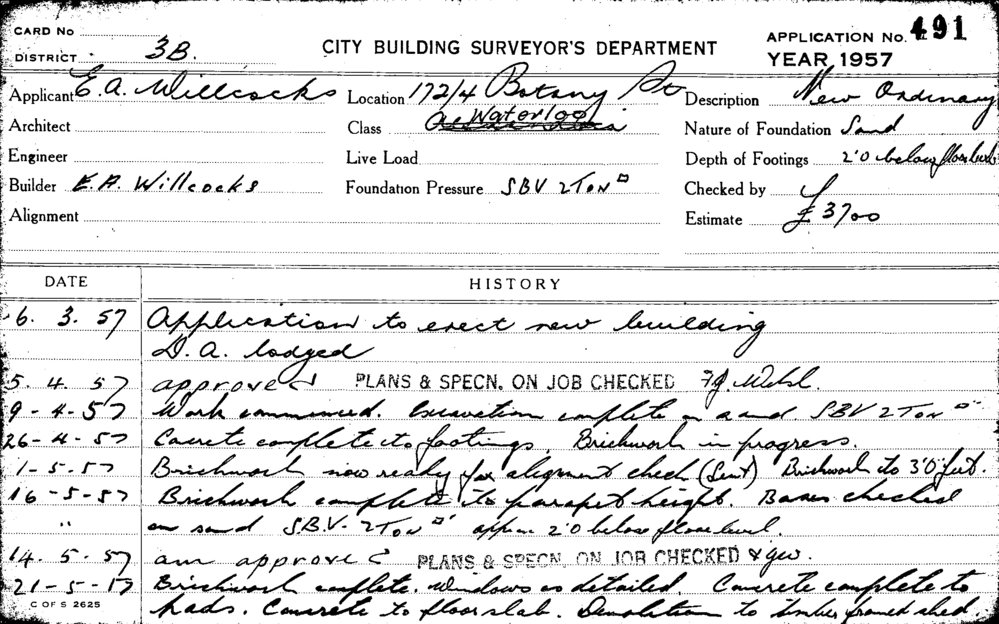 CARD No
DISTRICT 3B.
CITY BUILDING SURVEYOR'S DEPARTMENT
APPLICATION No. 491
YEAR 1957
Applicant E. A. Willcocks
Location 172/4 Botany St
Description New Ordinary
Architect
Class Waterloo
Nature of Foundation Sand
Engineer
Live Load
Depth of Footings 2'0 below floor level
Builder E. A. Willcocks
Foundation Pressure SBV 2 Ton □
Checked by
Alignment
Estimate £3700
DATE HISTORY
6. 3. 57 Application to erect new building
D. A. lodged
5. 4. 57 approved PLANS & SPECN. ON JOB CHECKED
9 - 4 - 57 Work commenced. Excavation complete on sand SBV 2 Ton □'
26 - 4 - 57 Concrete complete to footings. Brickwork in progress.
1 - 5 - 57 Brickwork now ready for alignment check (Sent) Brickwork to 3'0" feet.
16 - 5 - 57 Brickwork complete to parapet height. Bases checked
" on sand S.B.V. 2 Ton □' approx 2'0 below floor level.
14. 5. 57 am approved PLANS & SPECN. ON JOB CHECKED
21 - 5 - 57 Brickwork complete. Windows as detailed. Concrete complete to
C OF S 2625
pads. Concrete to floor slab. Demolition to timber framed shed.